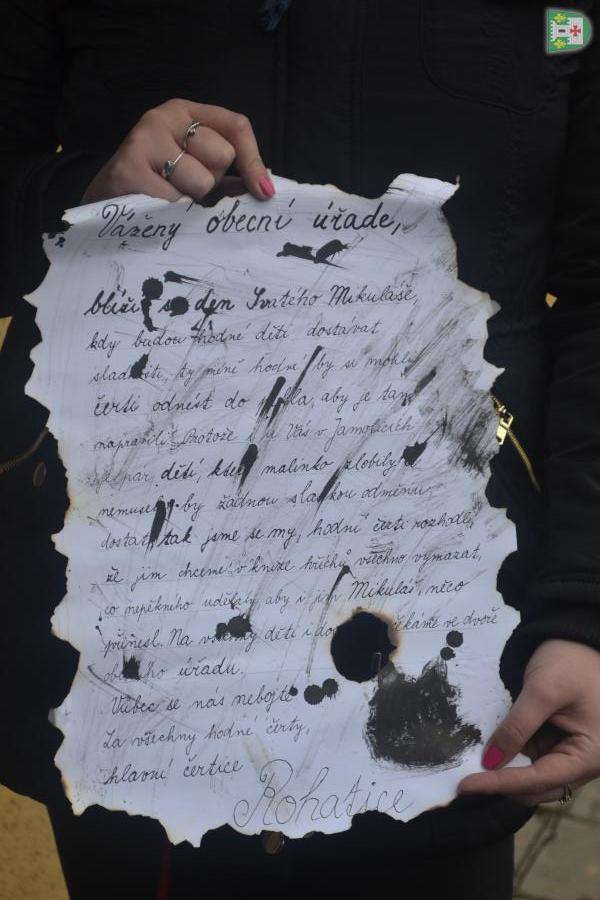 Vážený obecní úřade,
blíží se den Svatého Mikuláše,
kdy budou hodné děti dostávat
sladkosti, ty méně hodné by si mohli
čerti odnést do pekla, aby je tam
napravili. Protože i u Vás v Jamolicích
je pár dětí, které malinko zlobily a
nemusely by žádnou sladkou odměnu
dostat, tak jsme se my, hodní čerti rozhodli,
že jim chceme v knize hříchů všechno vymazat,
co nepěkného udělaly, aby i jim Mikuláš něco
přinesl. Na všechny děti i čekáme ve dvoře
obecního úřadu.
Vůbec se nás nebojte
Za všechny hodné čerty,
hlavní čertice
Rohatice